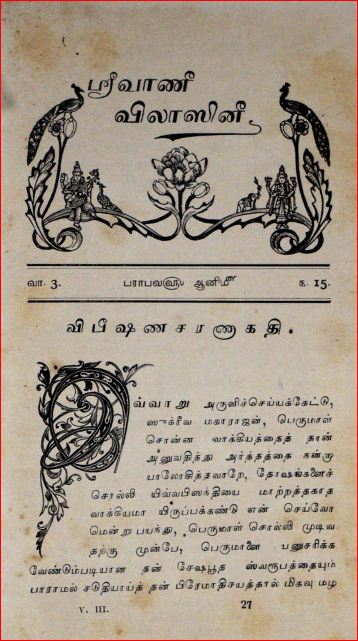 ஸ்ரீவாணீ
விலாஸினீ.
வா. 3.
பராபவ௵ ஆனி௴
ந. 15.
விபீஷணசரணாகதி.
இவ்வாறு அருளிச்செய்யக்கேட்டு,
ஸுக்ரீவ மகாராஜன், பெருமாள்
சொன்ன வாக்கியத்தைத் தான்
அனுவதித்து அர்த்தத்தை நன்றா
யாலோசித்தவாறே, தோஷங்களைச்
சொல்லி யிவ்வபிஸந்தியை மாற்றத்தகாத
வாக்கியமா யிருப்பக்கண்டு என் செய்வோ
மென்று பயந்து, பெருமாள் சொல்லி முடிவ
தற்கு முன்பே, பெருமாளை யனுசரிக்க
வேண்டும்படியான தன் சேஷபூத ஸ்வரூபத்தையும்
பாராமல் சடுதியாய்த் தன் பிரேமாதிசயத்தால் மிகவு மழ
V. III.
27